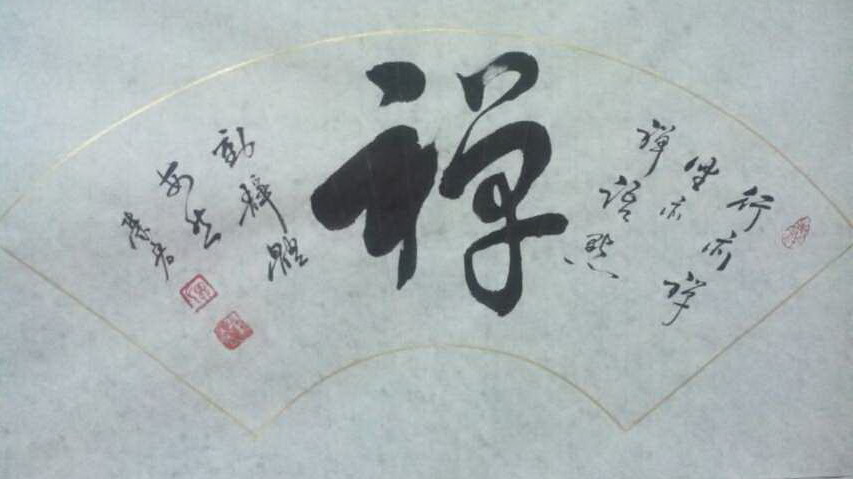 行亦禅
坐亦
禅語默
禅
動靜體
安然